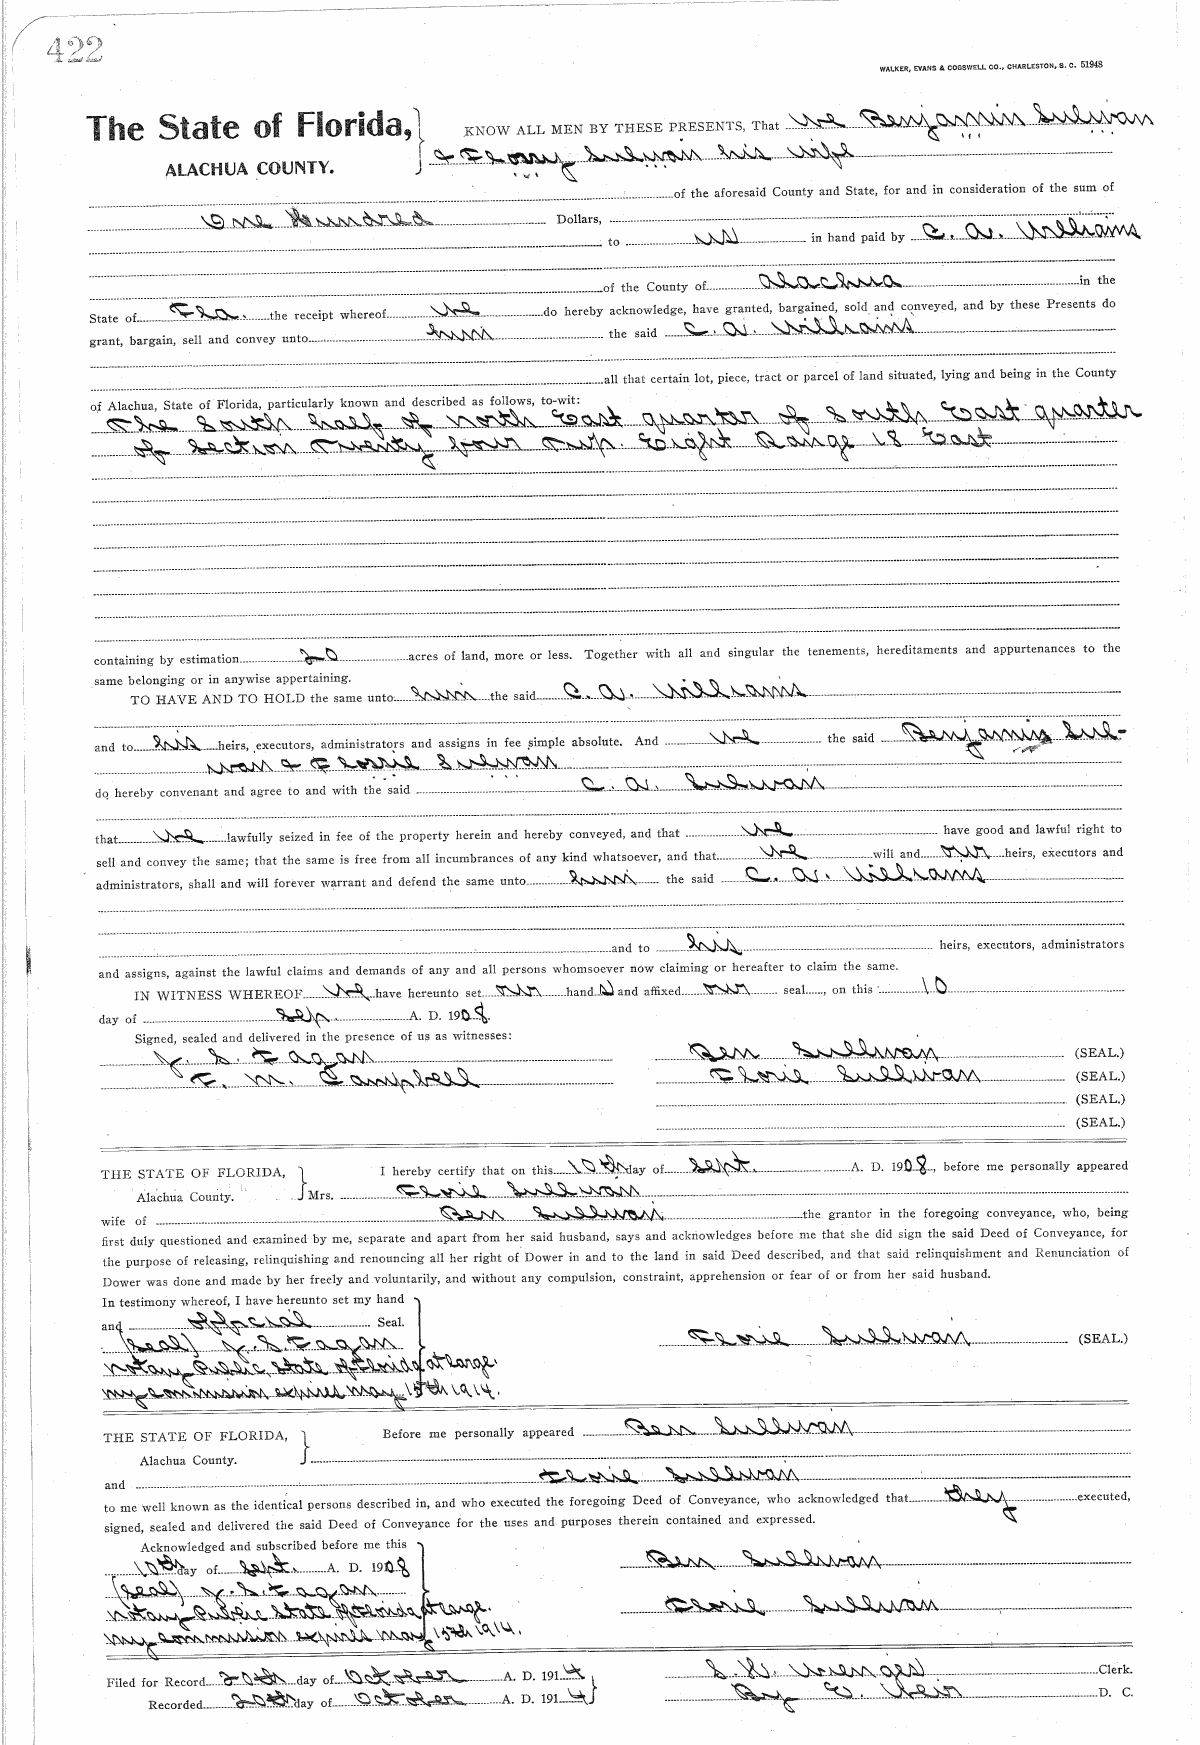 422
WALKER, EVANS & COGSWELL CO., CHARLESTON, S. C. 51948
The State of Florida, KNOW ALL MEN BY THESE PRESENTS, That We Benjamin Sulivan
ALACHUA COUNTY. & Florry Sulivan his wife
of the aforesaid County and State, for and in consideration of the sum of
One Hundred Dollars,
to us in hand paid by C. A. Williams
of the County of Alachua in the
State of Fla. the receipt whereof we do hereby acknowledge, have granted, bargained, sold and conveyed, and by these Presents do
grant, bargain, sell and convey unto him the said C. A. Williams
all that certain lot, piece, tract or parcel of land situated, lying and being in the County
of Alachua, State of Florida, particularly known and described as follows, to-wit:
The South half of North East quarter of South East quarter
of Section Twenty four Twp. Eight Range 18 East
containing by estimation 20 acres of land, more or less. Together with all and singular the tenements, hereditaments and appurtenances to the
same belonging or in anywise appertaining.
TO HAVE AND TO HOLD the same unto him the said C. A. Williams
and to his heirs, executors, administrators and assigns in fee simple absolute. And we the said Benjamin Sul-
ivan & Florrie Sulivan
do hereby convenant and agree to and with the said C. A. Sulivan
that we lawfully seized in fee of the property herein and hereby conveyed, and that we have good and lawful right to
sell and convey the same; that the same is free from all incumbrances of any kind whatsoever, and that we will and our heirs, executors and
administrators, shall and will forever warrant and defend the same unto him the said C. A. Williams
and to his heirs, executors, administrators
and assigns, against the lawful claims and demands of any and all persons whomsoever now claiming or hereafter to claim the same.
IN WITNESS WHEREOF We have hereunto set our hand s and affixed our seal, on this 10
day of Sep. A. D. 1908.
Signed, sealed and delivered in the presence of us as witnesses:
J. S. Fagan Ben Sullivan (SEAL.)
F. M. Campbell Florie Sullivan (SEAL.)
(SEAL.)
(SEAL.)
THE STATE OF FLORIDA, I hereby certify that on this 10th day of Sept. A. D. 1908, before me personally appeared
Alachua County. Mrs. Florie Sullivan
wife of Ben Sullivan the grantor in the foregoing conveyance, who, being
first duly questioned and examined by me, separate and apart from her said husband, says and acknowledges before me that she did sign the said Deed of Conveyance, for
the purpose of releasing, relinquishing and renouncing all her right of Dower in and to the land in said Deed described, and that said relinquishment and Renunciation of
Dower was done and made by her freely and voluntarily, and without any compulsion, constraint, apprehension or fear of or from her said husband.
In testimony whereof, I have hereunto set my hand
and official Seal.
(Seal) J. S. Fagan Florie Sullivan (SEAL.)
Notary Public, State of Florida at large.
My commission expires May 15th 1914.
THE STATE OF FLORIDA, Before me personally appeared Ben Sullivan
Alachua County.
and Florie Sullivan
to me well known as the identical persons described in, and who executed the foregoing Deed of Conveyance, who acknowledged that they executed,
signed, sealed and delivered the said Deed of Conveyance for the uses and purposes therein contained and expressed.
Acknowledged and subscribed before me this
10th day of Sept. A. D. 1908 Ben Sullivan
(Seal) J. S. Fagan
Notary Public State of Florida at large. Florie Sullivan
My commission expires May 15th 1914.
Filed for Record 20th day of October A. D. 1914 S. H. Wienges Clerk.
Recorded 20th day of October A. D. 1914 By E. Weir D. C.